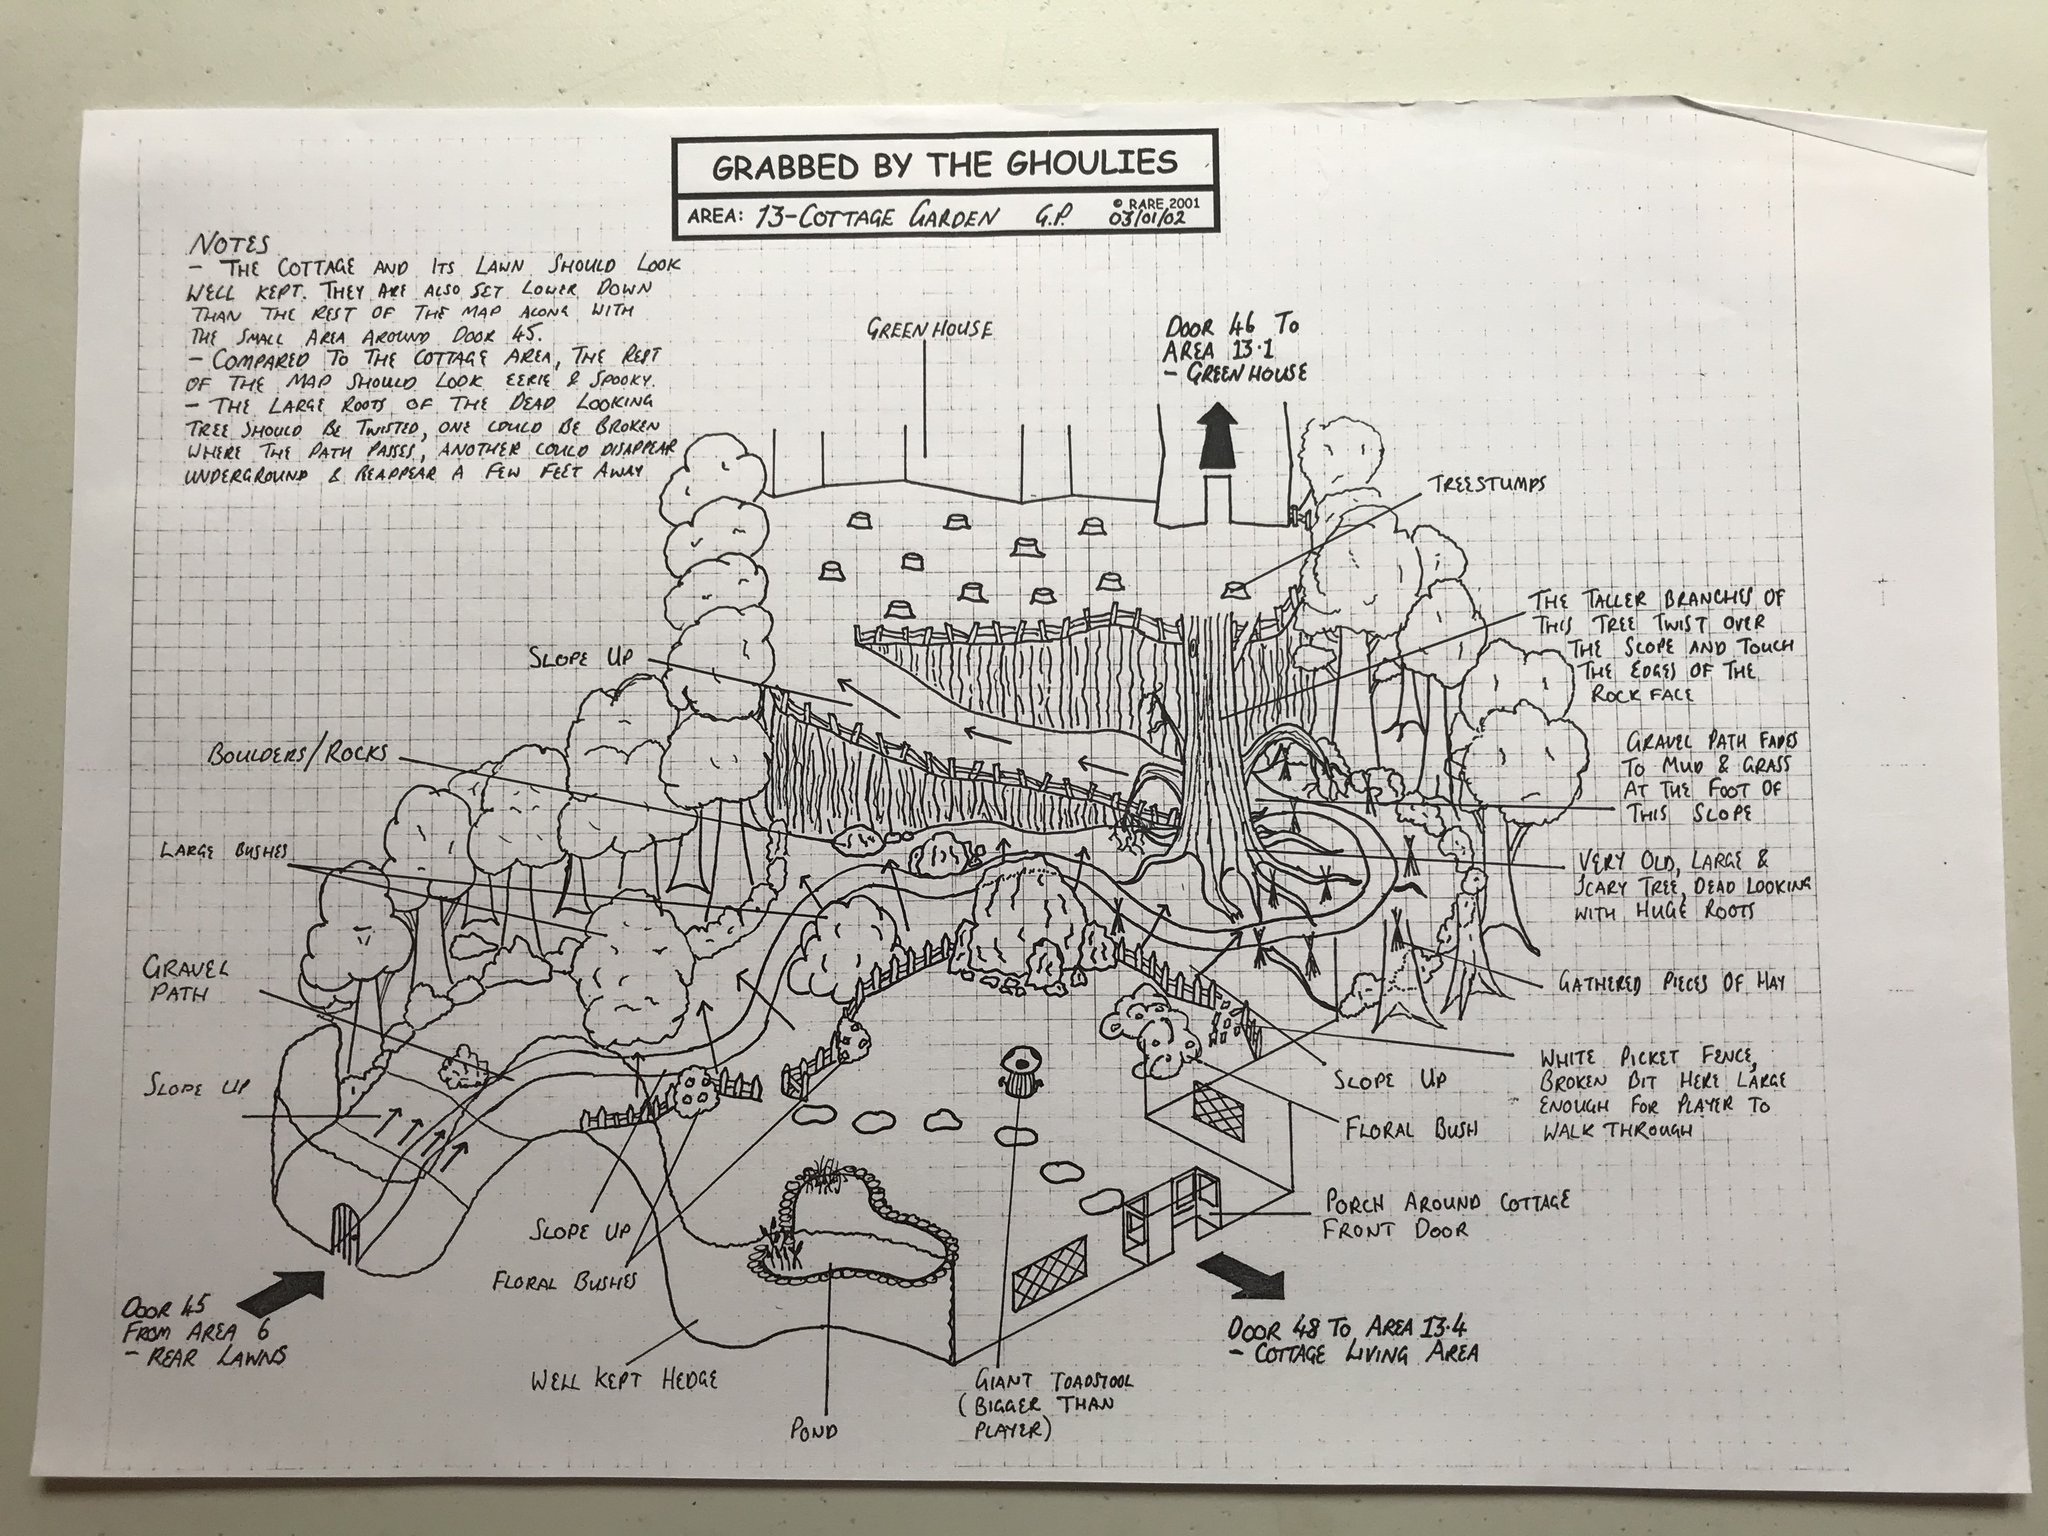 GRABBED BY THE GHOULIES
AREA: 13-COTTAGE GARDEN G.P. © RARE 2001
03/01/02
NOTES
- THE COTTAGE AND ITS LAWN SHOULD LOOK
WELL KEPT. THEY ARE ALSO SET LOWER DOWN
THAN THE REST OF THE MAP ALONG WITH
THE SMALL AREA AROUND DOOR 45.
- COMPARED TO THE COTTAGE AREA, THE REST
OF THE MAP SHOULD LOOK EERIE & SPOOKY.
- THE LARGE ROOTS OF THE DEAD LOOKING
TREE SHOULD BE TWISTED, ONE COULD BE BROKEN
WHERE THE PATH PASSES, ANOTHER COULD DISAPPEAR
UNDERGROUND & REAPPEAR A FEW FEET AWAY
GREENHOUSE
DOOR 46 TO
AREA 13.1
- GREENHOUSE
TREESTUMPS
THE TALLER BRANCHES OF
THIS TREE TWIST OVER
THE SLOPE AND TOUCH
THE EDGES OF THE
ROCK FACE
SLOPE UP
BOULDERS/ROCKS
GRAVEL PATH FADES
TO MUD & GRASS
AT THE FOOT OF
THIS SLOPE
LARGE BUSHES
VERY OLD, LARGE &
SCARY TREE, DEAD LOOKING
WITH HUGE ROOTS
GRAVEL
PATH
GATHERED PIECES OF HAY
SLOPE UP
WHITE PICKET FENCE,
BROKEN BIT HERE LARGE
ENOUGH FOR PLAYER TO
WALK THROUGH
SLOPE UP
FLORAL BUSH
PORCH AROUND COTTAGE
FRONT DOOR
SLOPE UP
FLORAL BUSHES
DOOR 45
FROM AREA 6
- REAR LAWNS
DOOR 48 TO AREA 13.4
- COTTAGE LIVING AREA
WELL KEPT HEDGE
POND
GIANT TOADSTOOL
(BIGGER THAN
PLAYER)